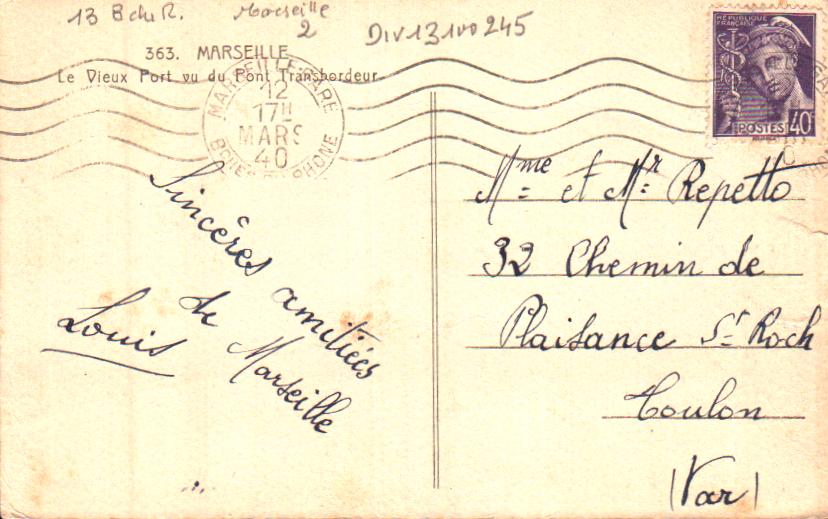 13 BchR. Marseille
2
DIV131V0245
363. MARSEILLE
Le Vieux Port vu du Pont Transbordeur
MARSEILLE-GARE
12
17H
MARS
40
BCHES DU RHONE
RÉPUBLIQUE
FRANÇAISE
POSTES 40F
Sincères amitiées
de Marseille
Louis
Mme et Mr Repetto
32 Chemin de
Plaisance St Roch
Toulon
(Var)